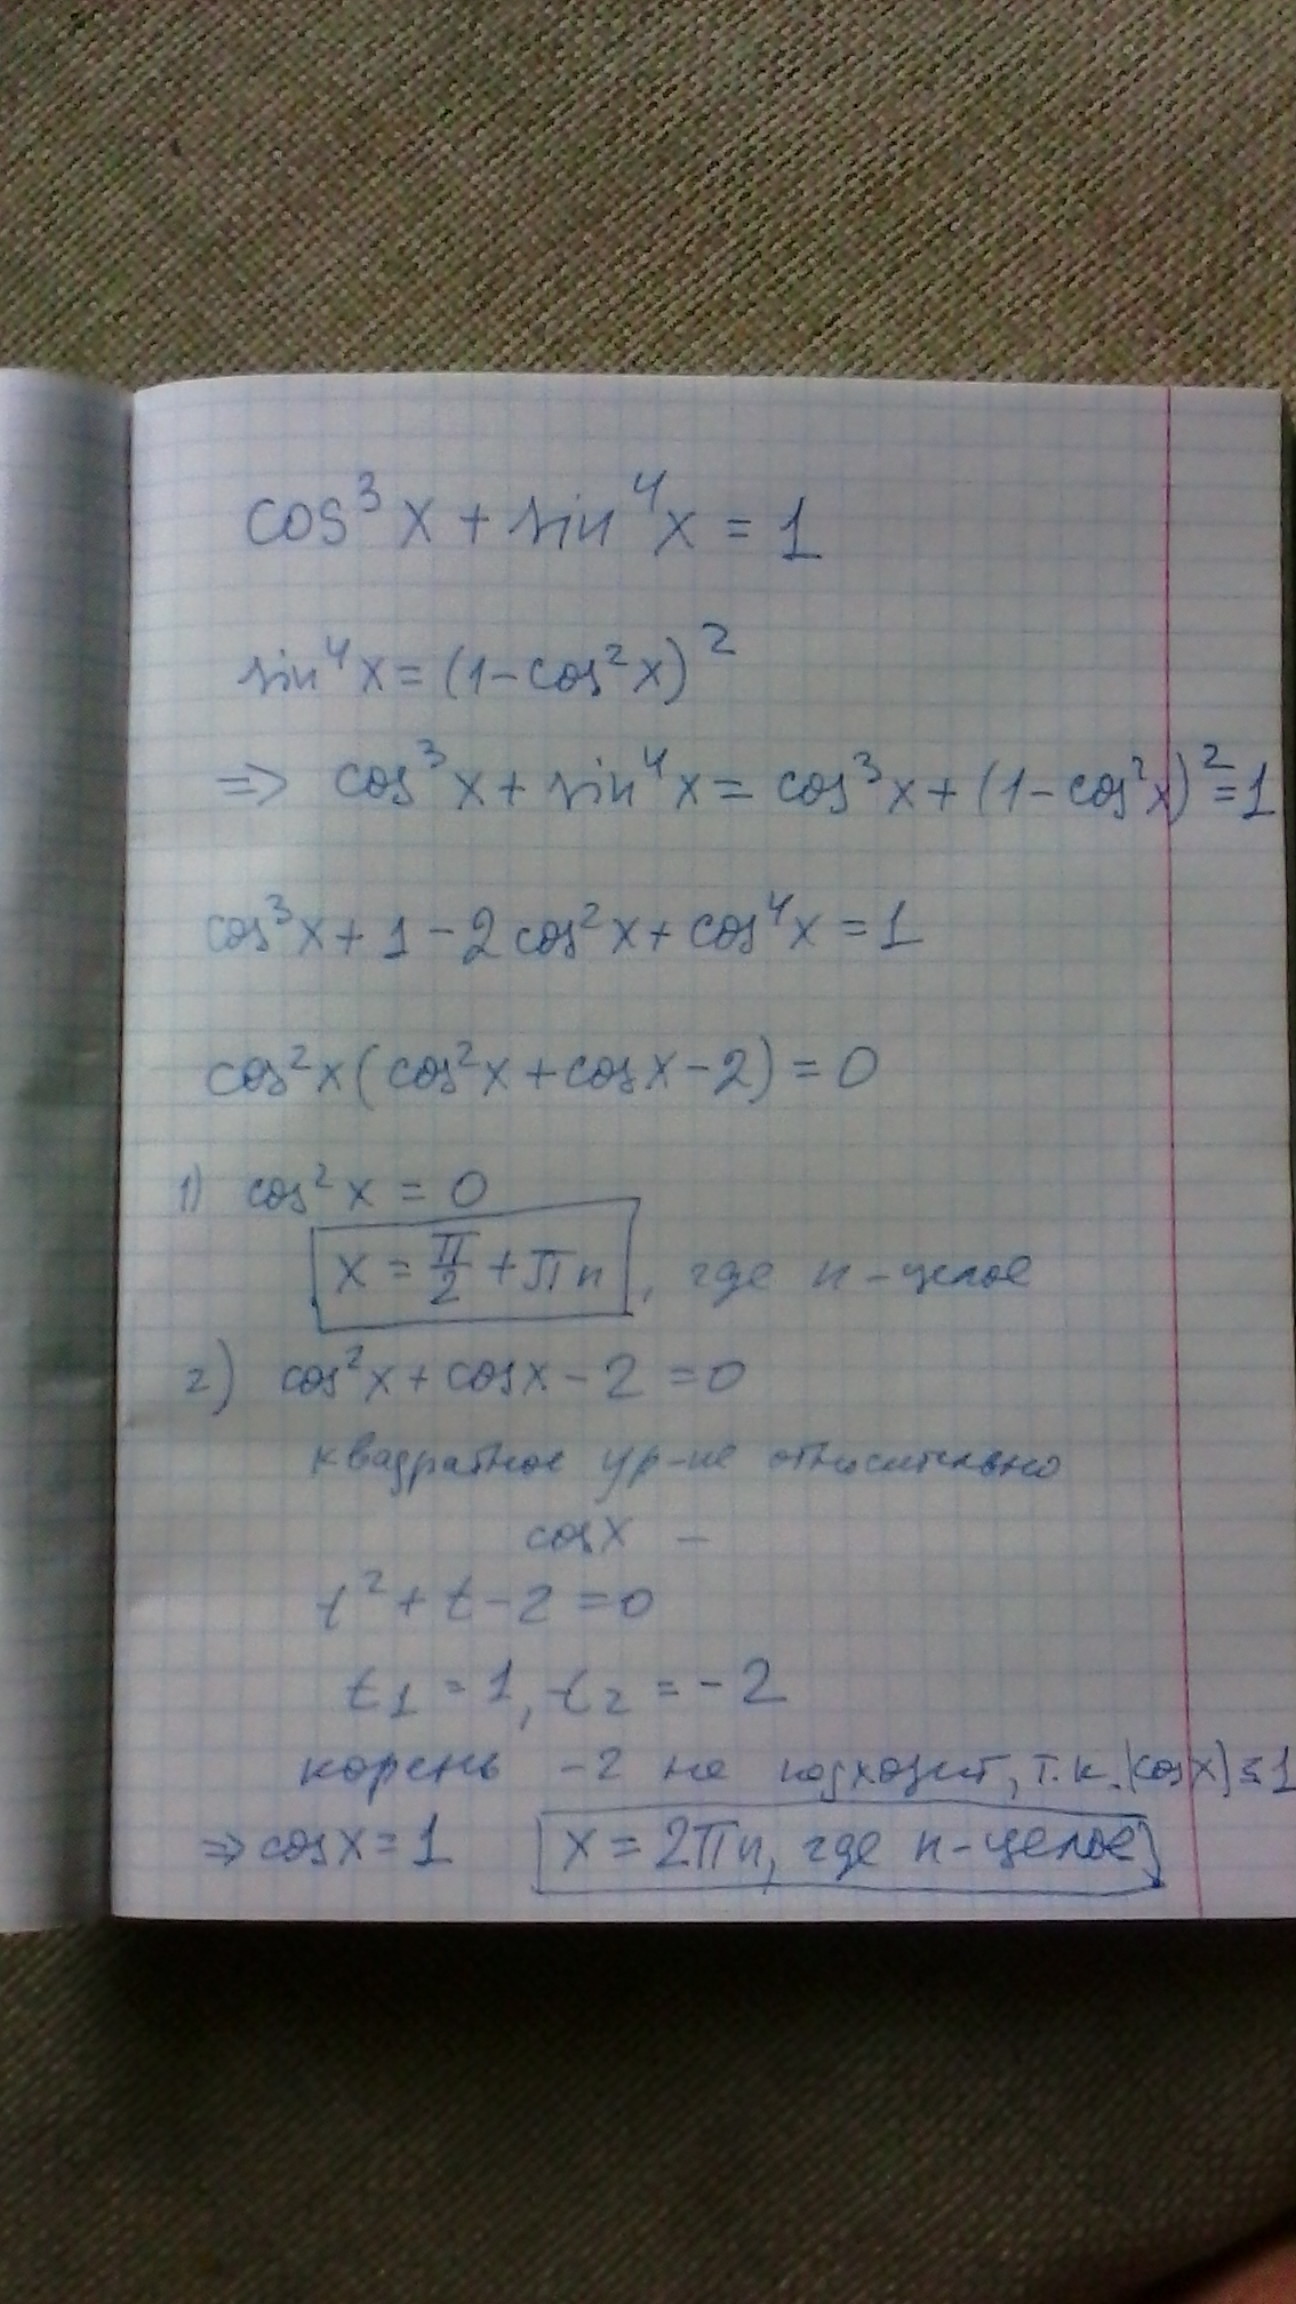 cos³x + sin⁴x = 1
sin⁴x = (1 - cos²x)²
=> cos³x + sin⁴x = cos³x + (1 - cos²x)² = 1
cos³x + 1 - 2cos²x + cos⁴x = 1
cos²x(cos²x + cosx - 2) = 0
1) cos²x = 0
x = π/2 + πn, где n - целое
2) cos²x + cosx - 2 = 0
квадратное ур-ие относительно
cosx -
t² + t - 2 = 0
t₁ = 1, t₂ = -2
корень -2 не подходит, т.к. |cosx| ≤ 1
=> cosx = 1 x = 2πn, где n - целое